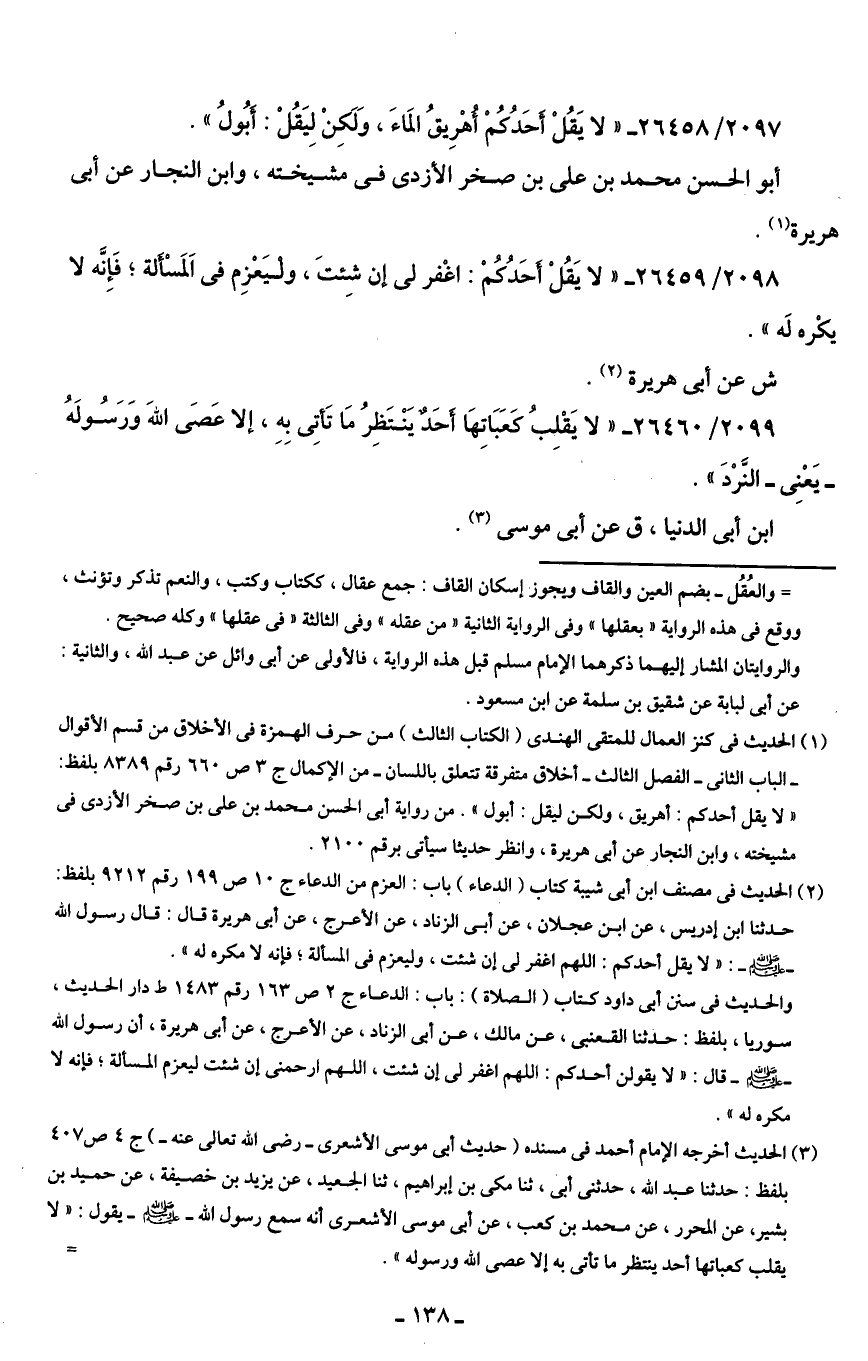 ٢٠٩٧/ ٢٦٤٥٨ـ « لا يَقُلْ أَحَدُكُمْ أُهْرِيقُ الَماءَ ، ولَكِنْ لِيَقُلْ : أَبُولُ » .
أبو الحـسن محمـد بن على بن صـخر الأزدى فـى مشـيخـته ، وابن النجـار عن أبى
هريرة(١) .
٢٠٩٨/ ٢٦٤٥٩ـ « لا يَقُلْ أَحَدُكُمْ : اغْفر لى إن شِئتَ ، ولـْيَعْزِم فى اَلمَسْأَلة ؛ فَإِنَّه لا
يكْره لَه » .
ش عن أبى هريرة (٢) .
٢٠٩٩/ ٢٦٤٦٠ـ « لا يَقْلِبُ كَعَبَاتِهَا أَحَدٌ يَنْـتَظِرُ مَا تَأتِى بِهِ ، إلا عَصَى اللهَ وَرَسُـولَهُ
ـ يَعْنِى ـ النَّرْدَ » .
ابن أبى الدنيا ، ق عن أبى موسى (٣) .
= والعُقُل ـ بضم العين والقاف ويجوز إسكان القاف : جمع عقال ، ككتاب وكتب ، والنعم تذكر وتؤنث ،
ووقع فى هذه الرواية « بعقلها » وفى الرواية الثانية « من عقله » وفى الثالثة « فى عقلها » وكله صحيح .
والروايتان المشار إليهـما ذكرهمـا الإمام مسلم قبل هذه الرواية ، فالأولى عن أبى وائل عن عبـد الله ، والثانية :
عن أبى لبابة عن شقيق بن سلمة عن ابن مسعود .
(١) الحديث فى كنز العمال للمتقى الهندى ( الكتاب الثالث ) مـن حرف الهـمزة فى الأخلاق من قسم الأقوال
ـ الباب الثانى ـ الفصل الثالث ـ أخلاق متفرقة تتعلق باللسان ـ من الإكمال ج ٣ ص ٦٦٠ رقم ٨٣٨٩ بلفظ:
« لا يقل أحدكم : أهريق ، ولكـن ليقل : أبول » . من رواية أبى الحسن محـمد بن على بن صـخر الأزدى فى
مشيخته ، وابن النجار عن أبى هريرة ، وانظر حديثا سيأتى برقم ٢١٠٠ .
(٢) الحديث فى مصنف ابن أبى شيبة كتاب ( الدعاء ) باب : العزم من الدعاء ج ١٠ ص ١٩٩ رقم ٩٢١٢ بلفظ:
حـدثنا ابن إدريس ، عن ابـن عجـلان ، عن أبـى الزناد ، عن الأعـرج ، عن أبى هريرة قال : قـال رسـول الله
ـ ﷺ ـ : « لا يقل أحدكم : اللهم اغفر لى إن شئت ، وليعزم فى المسألة ؛ فإنه لا مكره له » .
والحديث فى سنن أبى داود كـتاب ( الـصلاة ) : باب : الدعـاء ج ٢ ص ١٦٣ رقم ١٤٨٣ ط دار الحـديث ،
سـوريا ، بلفظ : حـدثنا القـعنبى ، عـن مالك ، عـن أبى الزناد ، عن الأعـرج ، عن أبى هريرة ، أن رسـول الله
ـ ﷺ ـ قال : « لا يقولن أحـدكم : اللهم اغفر لى إن شئت ، اللـهم ارحمنى إن شئت ليعزم المـسألة ؛ فإنه لا
مكره له » .
(٣) الحديث أخرجه الإمام أحمد فى مسنده ( حديث أبى موسى الأشعرى ـ رضى الله تعالى عنه ـ ) ج ٤ ص٤٠٧
بلفظ : حدثنا عبـد الله ، حدثنى أبى ، ثنا مكى بن إبراهيم ، ثنا الجعيد ، عن يزيد بن خصيفة ، عن حميـد بن
بشير، عن المحرر ، عن مـحمد بن كعب ، عن أبى موسى الأشعـرى أنه سمع رسول الله ـ ﷺ ـ يقول : « لا
يقلب كعباتها أحد ينتظر ما تأتى به إلا عصى الله ورسوله » .
=
ـ ١٣٨ ـ